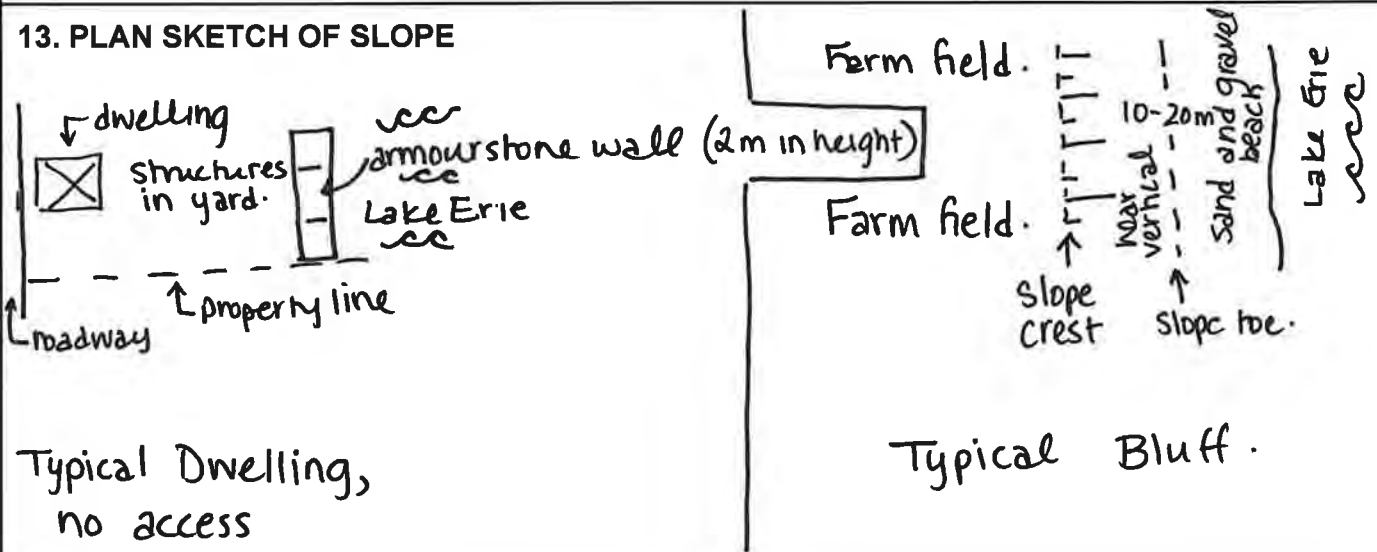 13. PLAN SKETCH OF SLOPE
dwelling
structures
in yard.
armourstone wall (2m in height)
Lake Erie
property line
roadway
Typical Dwelling,
no access
Farm field.
Farm field.
Slope
crest
near
vertical
10-20m
slope toe.
Sand and gravel
beach
Lake Erie
Typical Bluff.